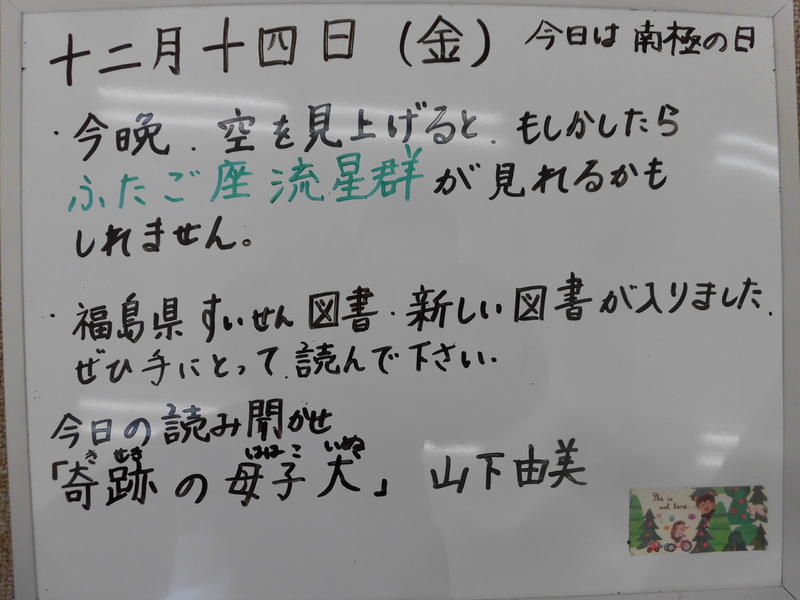 十二月十四日(金) 今日は 南極の日
・今晩、空を見上げると、もしかしたら
ふたご座流星群が見れるかも
しれません。
・福島県すいせん図書・新しい図書が入りました。
ぜひ手にとって読んで下さい。
今日の読み聞かせ
きせき ははこ いぬ
「奇跡の母子犬」 山下由美
She is
not here.